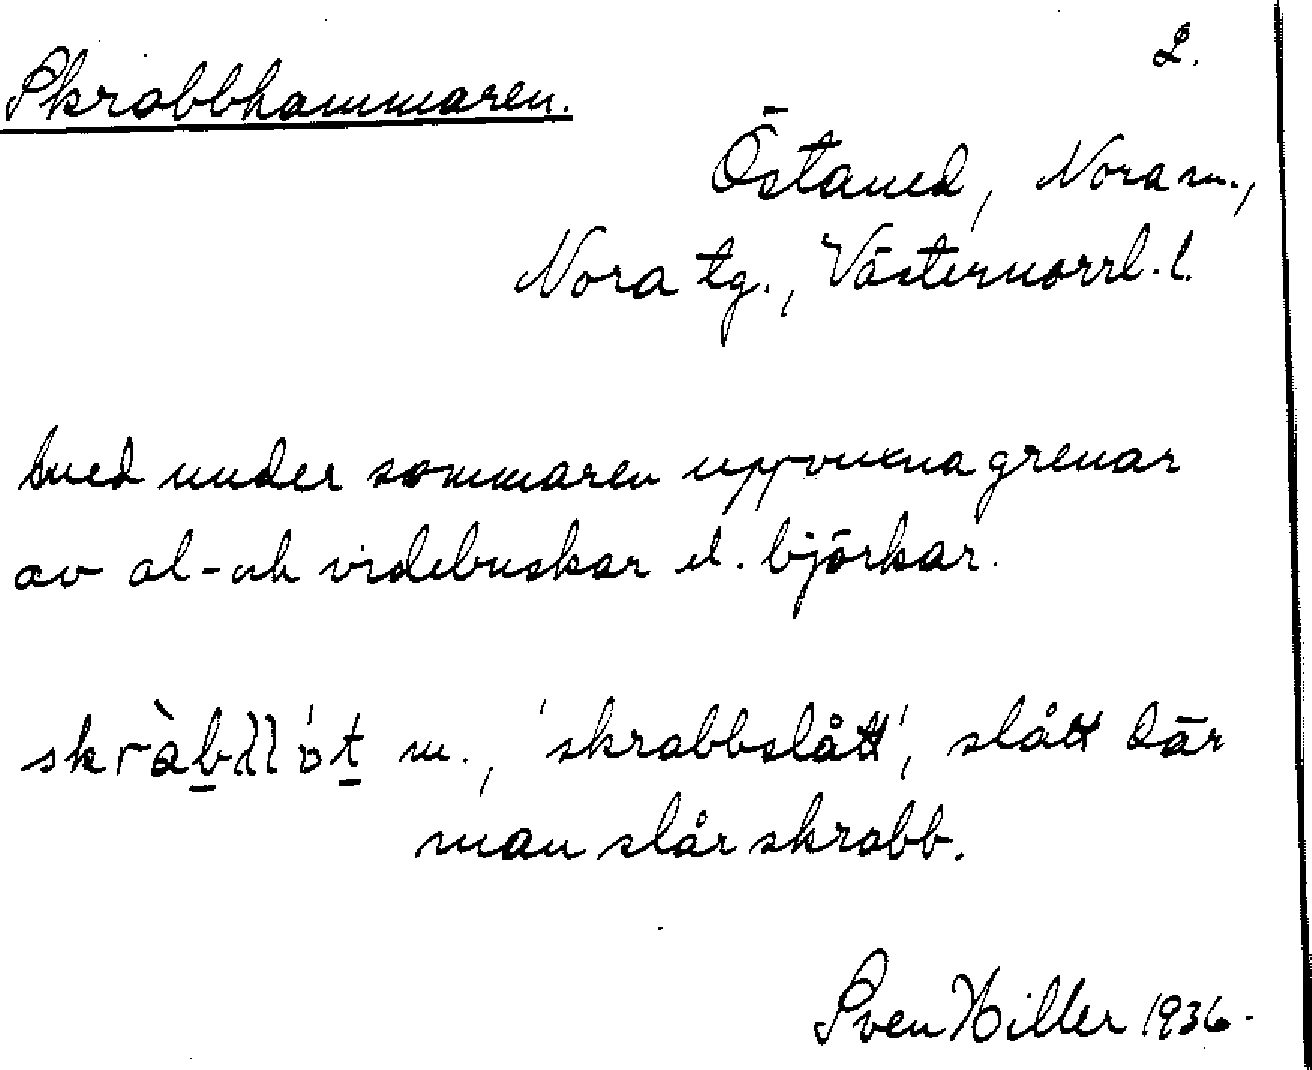 2.
Skrabbhammaren.
Östaned, Nora sn.,
Nora tg., Västernorrl. l.
med under sommaren uppvuxna grenar
av al- och videbuskar el. björkar.
m., 'skrabbslått', slått där
man slår skrabb.
Sven Hiller 1936.